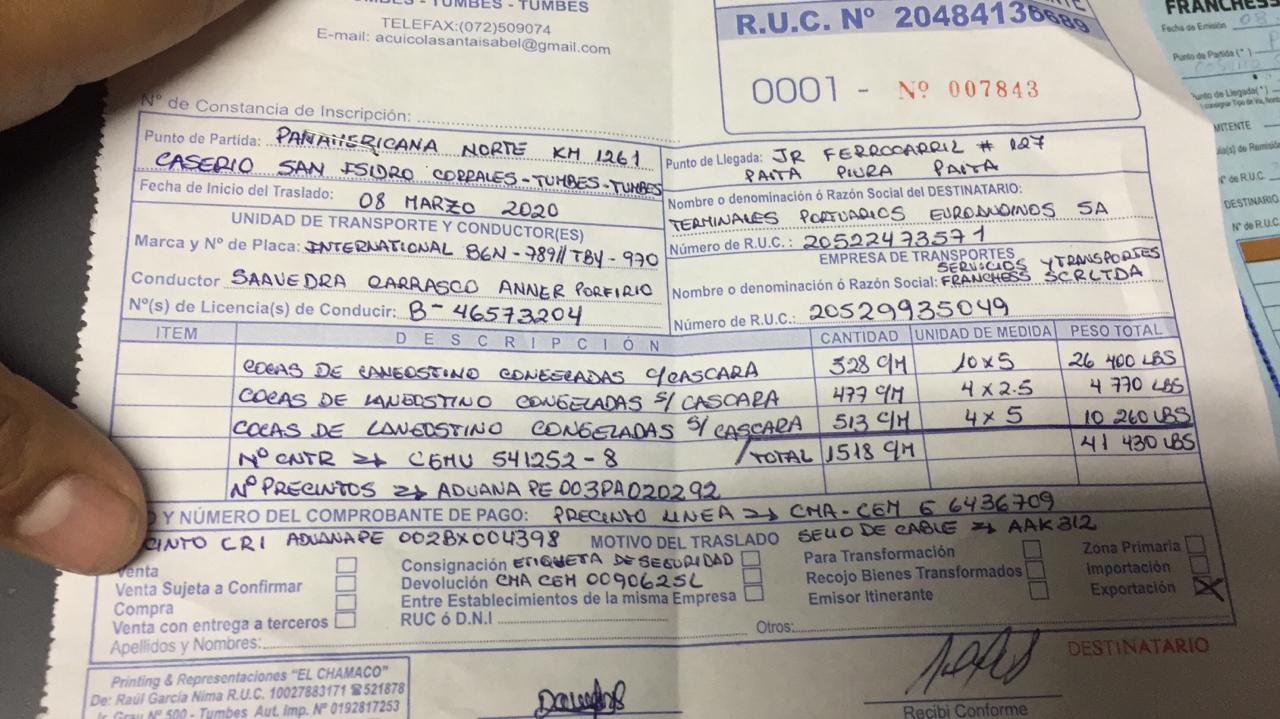 TUMBES - TUMBES - TUMBES
TELEFAX:(072)509074
E-mail: acuicolasantaisabel@gmail.com
R.U.C. Nº 20484136689
0001 - Nº 007843
Nº de Constancia de Inscripción:
Punto de Partida: PANAMERICANA NORTE KM 1261
CASERIO SAN ISIDRO CORRALES-TUMBES-TUMBES
Fecha de Inicio del Traslado: 08 MARZO 2020
UNIDAD DE TRANSPORTE Y CONDUCTOR(ES)
Marca y Nº de Placa: INTERNATIONAL B6N-789//TBY-970
Conductor SAAVEDRA CARRASCO ANNER PORFIRIO
Nº(s) de Licencia(s) de Conducir: B-46573204
Punto de Llegada: JR FERROCARRIL # 127
PAITA PIURA PAITA
Nombre o denominación ó Razón Social del DESTINATARIO:
TERMINALES PORTUARIOS EUROANDINOS SA
Número de R.U.C.: 20522473571
EMPRESA DE TRANSPORTES
SERVICIOS Y TRANSPORTES
Nombre o denominación ó Razón Social: FRANCHESS SCRLTDA
Número de R.U.C.: 20529935049
ITEM DESCRIPCIÓN CANTIDAD UNIDAD DE MEDIDA PESO TOTAL
COLAS DE LANGOSTINO CONGELADAS C/CASCARA 528 C/M 10x5 26 400 LBS
COLAS DE LANGOSTINO CONGELADAS S/ CASCARA 477 C/M 4 x 2.5 4 770 LBS
COLAS DE LANGOSTINO CONGELADAS S/ CASCARA 513 C/M 4 x 5 10 260 LBS
Nº CNTR => CEMU 541252-8 /TOTAL 1518 C/M 41 430 LBS
Nº PRECINTOS => ADUANA PE 003PA020292
Y NÚMERO DEL COMPROBANTE DE PAGO: PRECINTO LINEA => CMA-CGM G 6436709
CINTO CRI ADUANAPE 002BX004398 MOTIVO DEL TRASLADO SELLO DE CABLE => AAK312
Venta
Venta Sujeta a Confirmar
Compra
Venta con entrega a terceros
Consignación ETIQUETA DE SEGURIDAD
Devolución CMA CGM 0090625L
Entre Establecimientos de la misma Empresa
RUC ó D.N.I
Para Transformación
Recojo Bienes Transformados
Emisor Itinerante
Zona Primaria
Importación
Exportación X
Otros:
Apellidos y Nombres:
Printing & Representaciones "EL CHAMACO"
De: Raúl García Nima R.U.C. 10027883171 ☎521878
Jr. Grau Nº 500 - Tumbes Aut. Imp. Nº 0192817253
DESTINATARIO
Recibí Conforme
FRANCHESS
Fecha de Emisión 08
Punto de Partida (*)
Punto de Llegada(*)
Nº de R.U.C.
DESTINARIO
Nº de R.U.